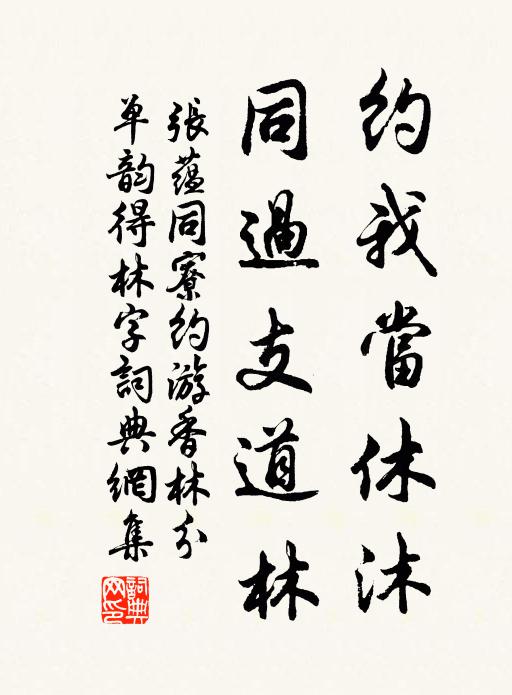 約我當休沐
同過支道林
張蘊同寮約游香林分
单韵得林字詞典網集
詞典网印